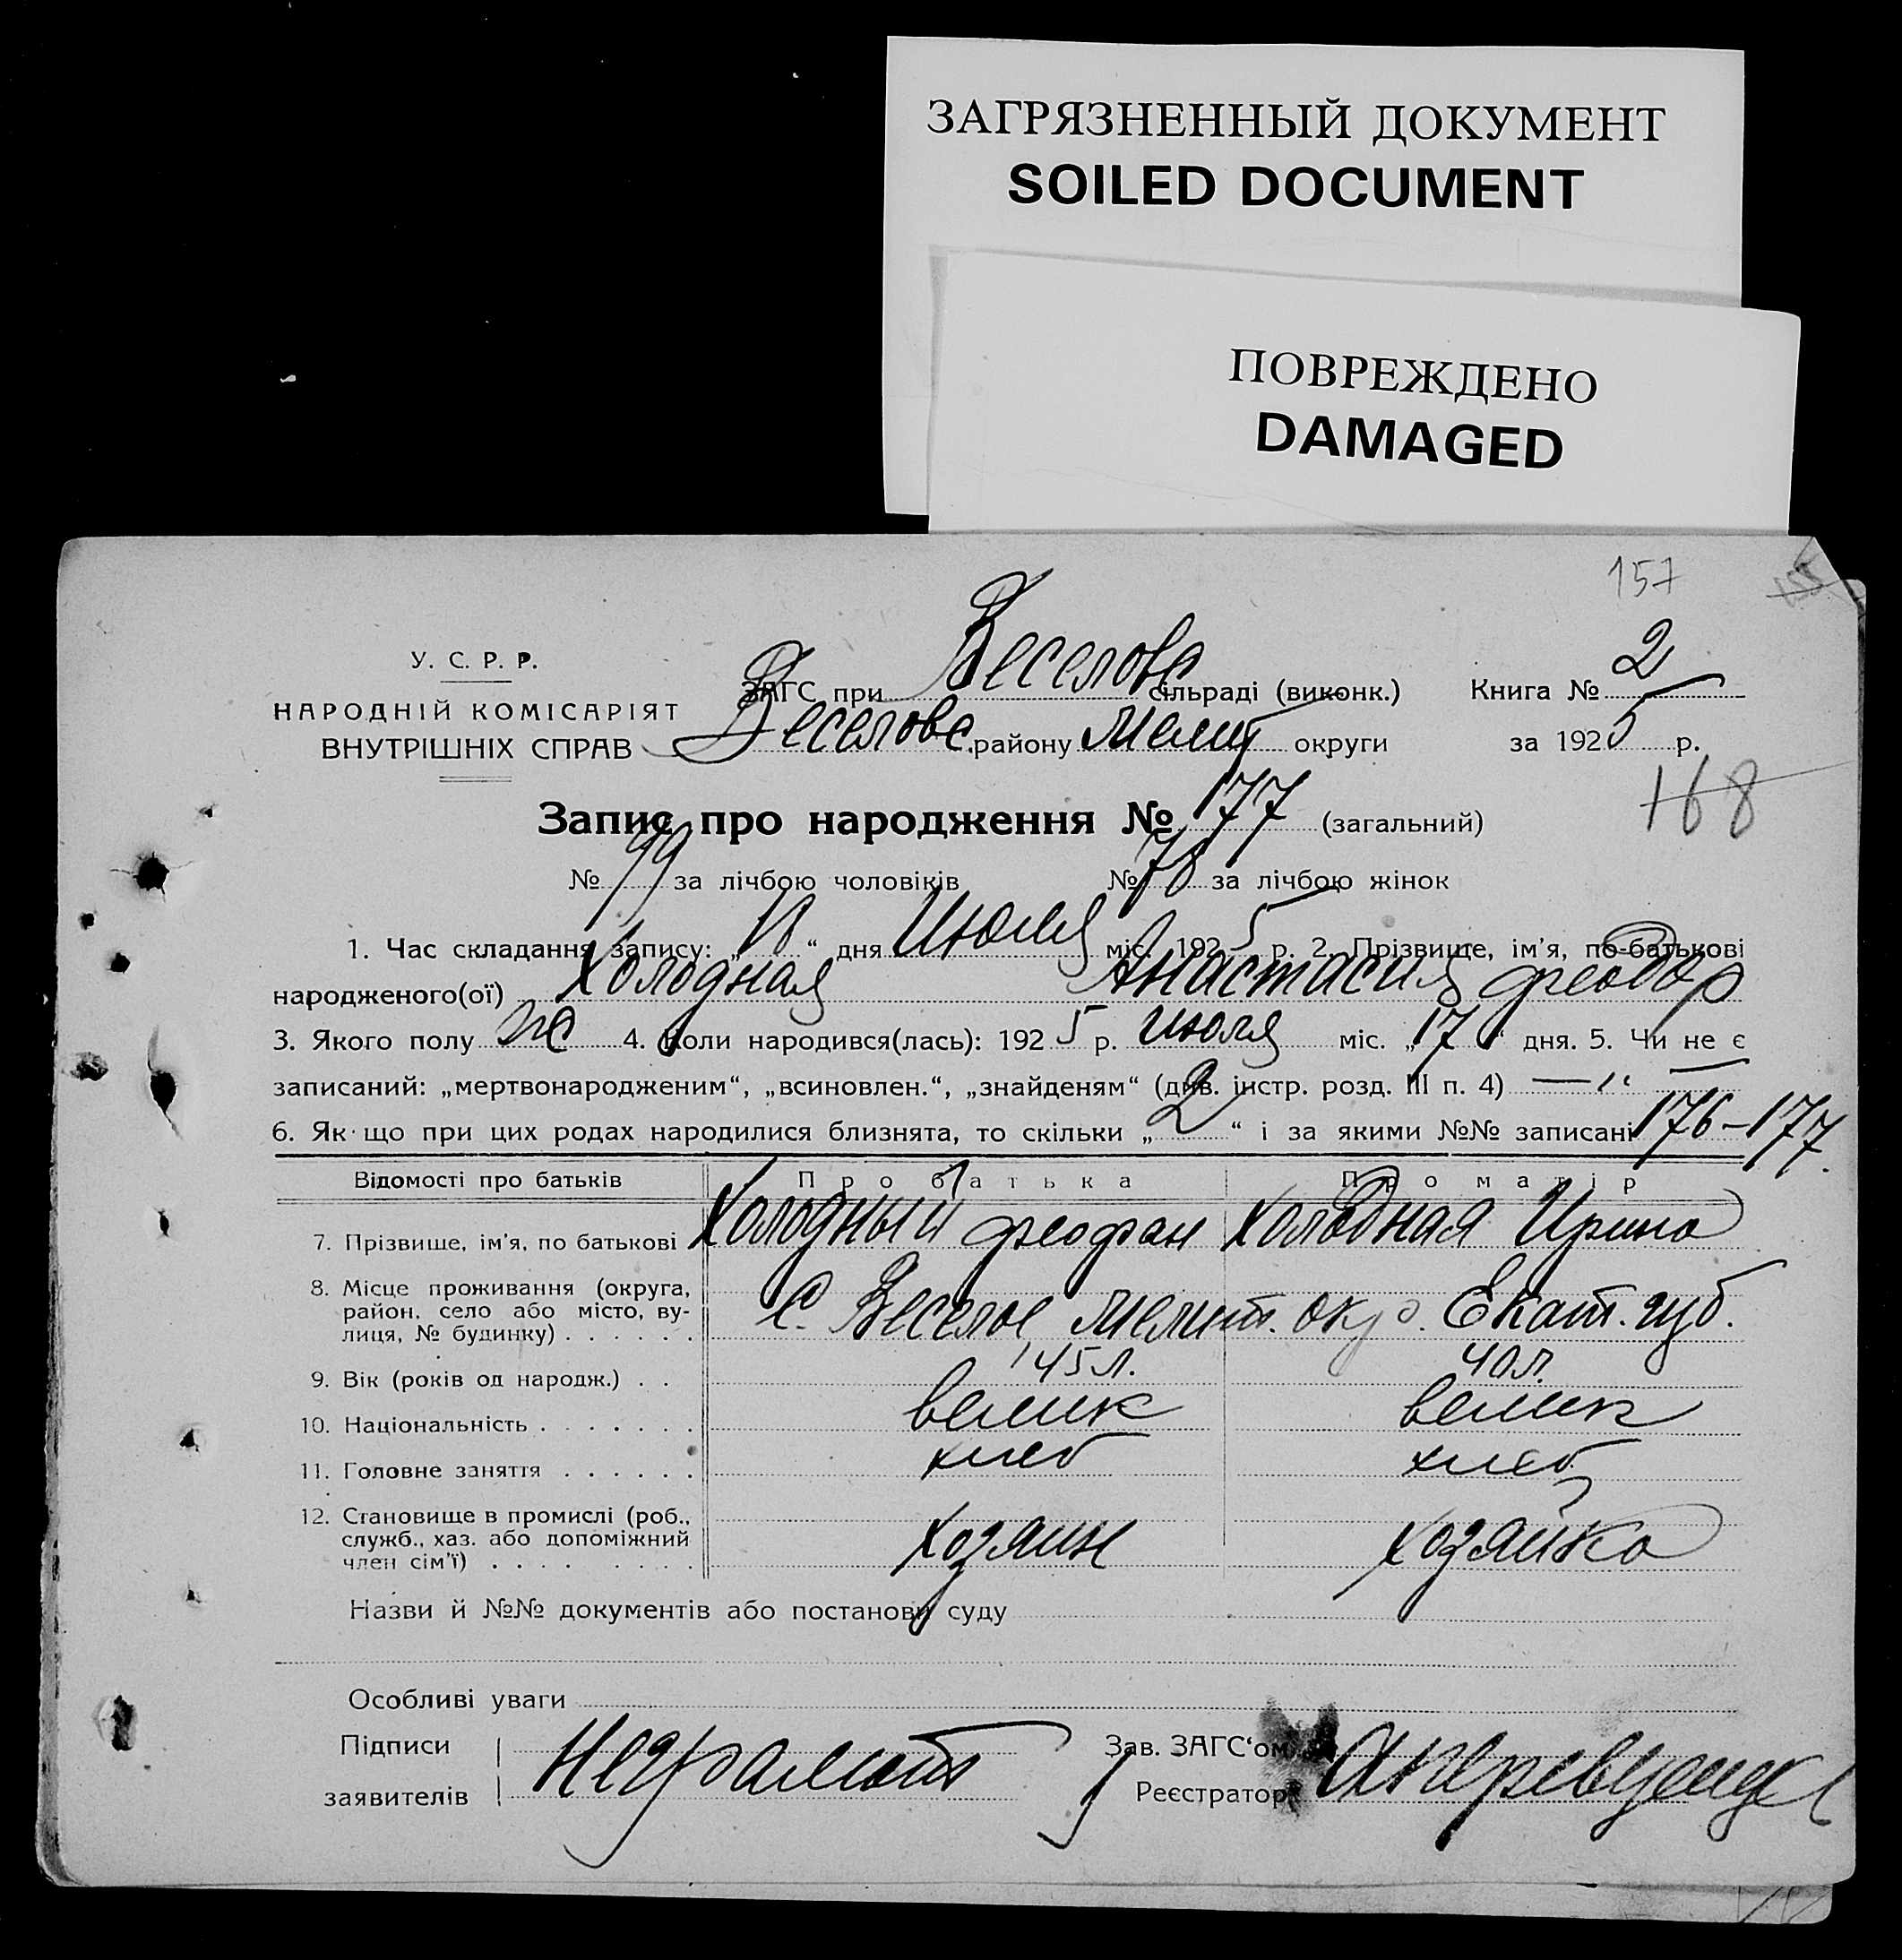 ЗАГРЯЗНЕННЫЙ ДОКУМЕНТ
SOILED DOCUMENT
ПОВРЕЖДЕНО
DAMAGED
157
У. С. Р. Р.
НАРОДНІЙ КОМІСАРІЯТ
ВНУТРІШНІХ СПРАВ
ЗАГС при Веселовс сільраді (виконк.) Книга № 2
Веселовс району Мелит округи за 1925 р.
168
Запис про народження № 177 (загальний)
№ 99 за лічбою чоловіків № 78 за лічбою жінок
1. Час складання запису: „18“ дня Июля міс. 1925 р. 2. Прізвище, ім'я, по-батькові
народженого(ої) Холодная Анастасия Феодор
3. Якого полу ж 4. Коли народився(лась): 1925 р. июля міс. „17“ дня. 5. Чи не є
записаний: „мертвонародженим“, „всиновлен.“, „знайденям“ (див. інстр. розд. III п. 4) — „ —
6. Як що при цих родах народилися близнята, то скільки „2“ і за якими №№ записані 176-177.
Відомості про батьків Про батька Про матір
7. Прізвище, ім'я, по батькові Холодный Феофан Холодная Ирина
8. Місце проживання (округа,
район, село або місто, ву-
лиця, № будинку) . . . . . . С. Веселое Мелит. окр. Екат. губ.
9. Вік (років од народж.) . . 45 л. 40 л.
10. Національність . . . . . . . велик велик
11. Головне заняття . . . . . . хлеб хлеб
12. Становище в промислі (роб.,
служб., хаз. або допоміжний
член сім'ї) . . . . . . . . . хозяин хозяйка
Назви й №№ документів або постанови суду
Особливі уваги
Підписи
заявителів Неграмот
Зав. ЗАГС'ом
Реєстратор